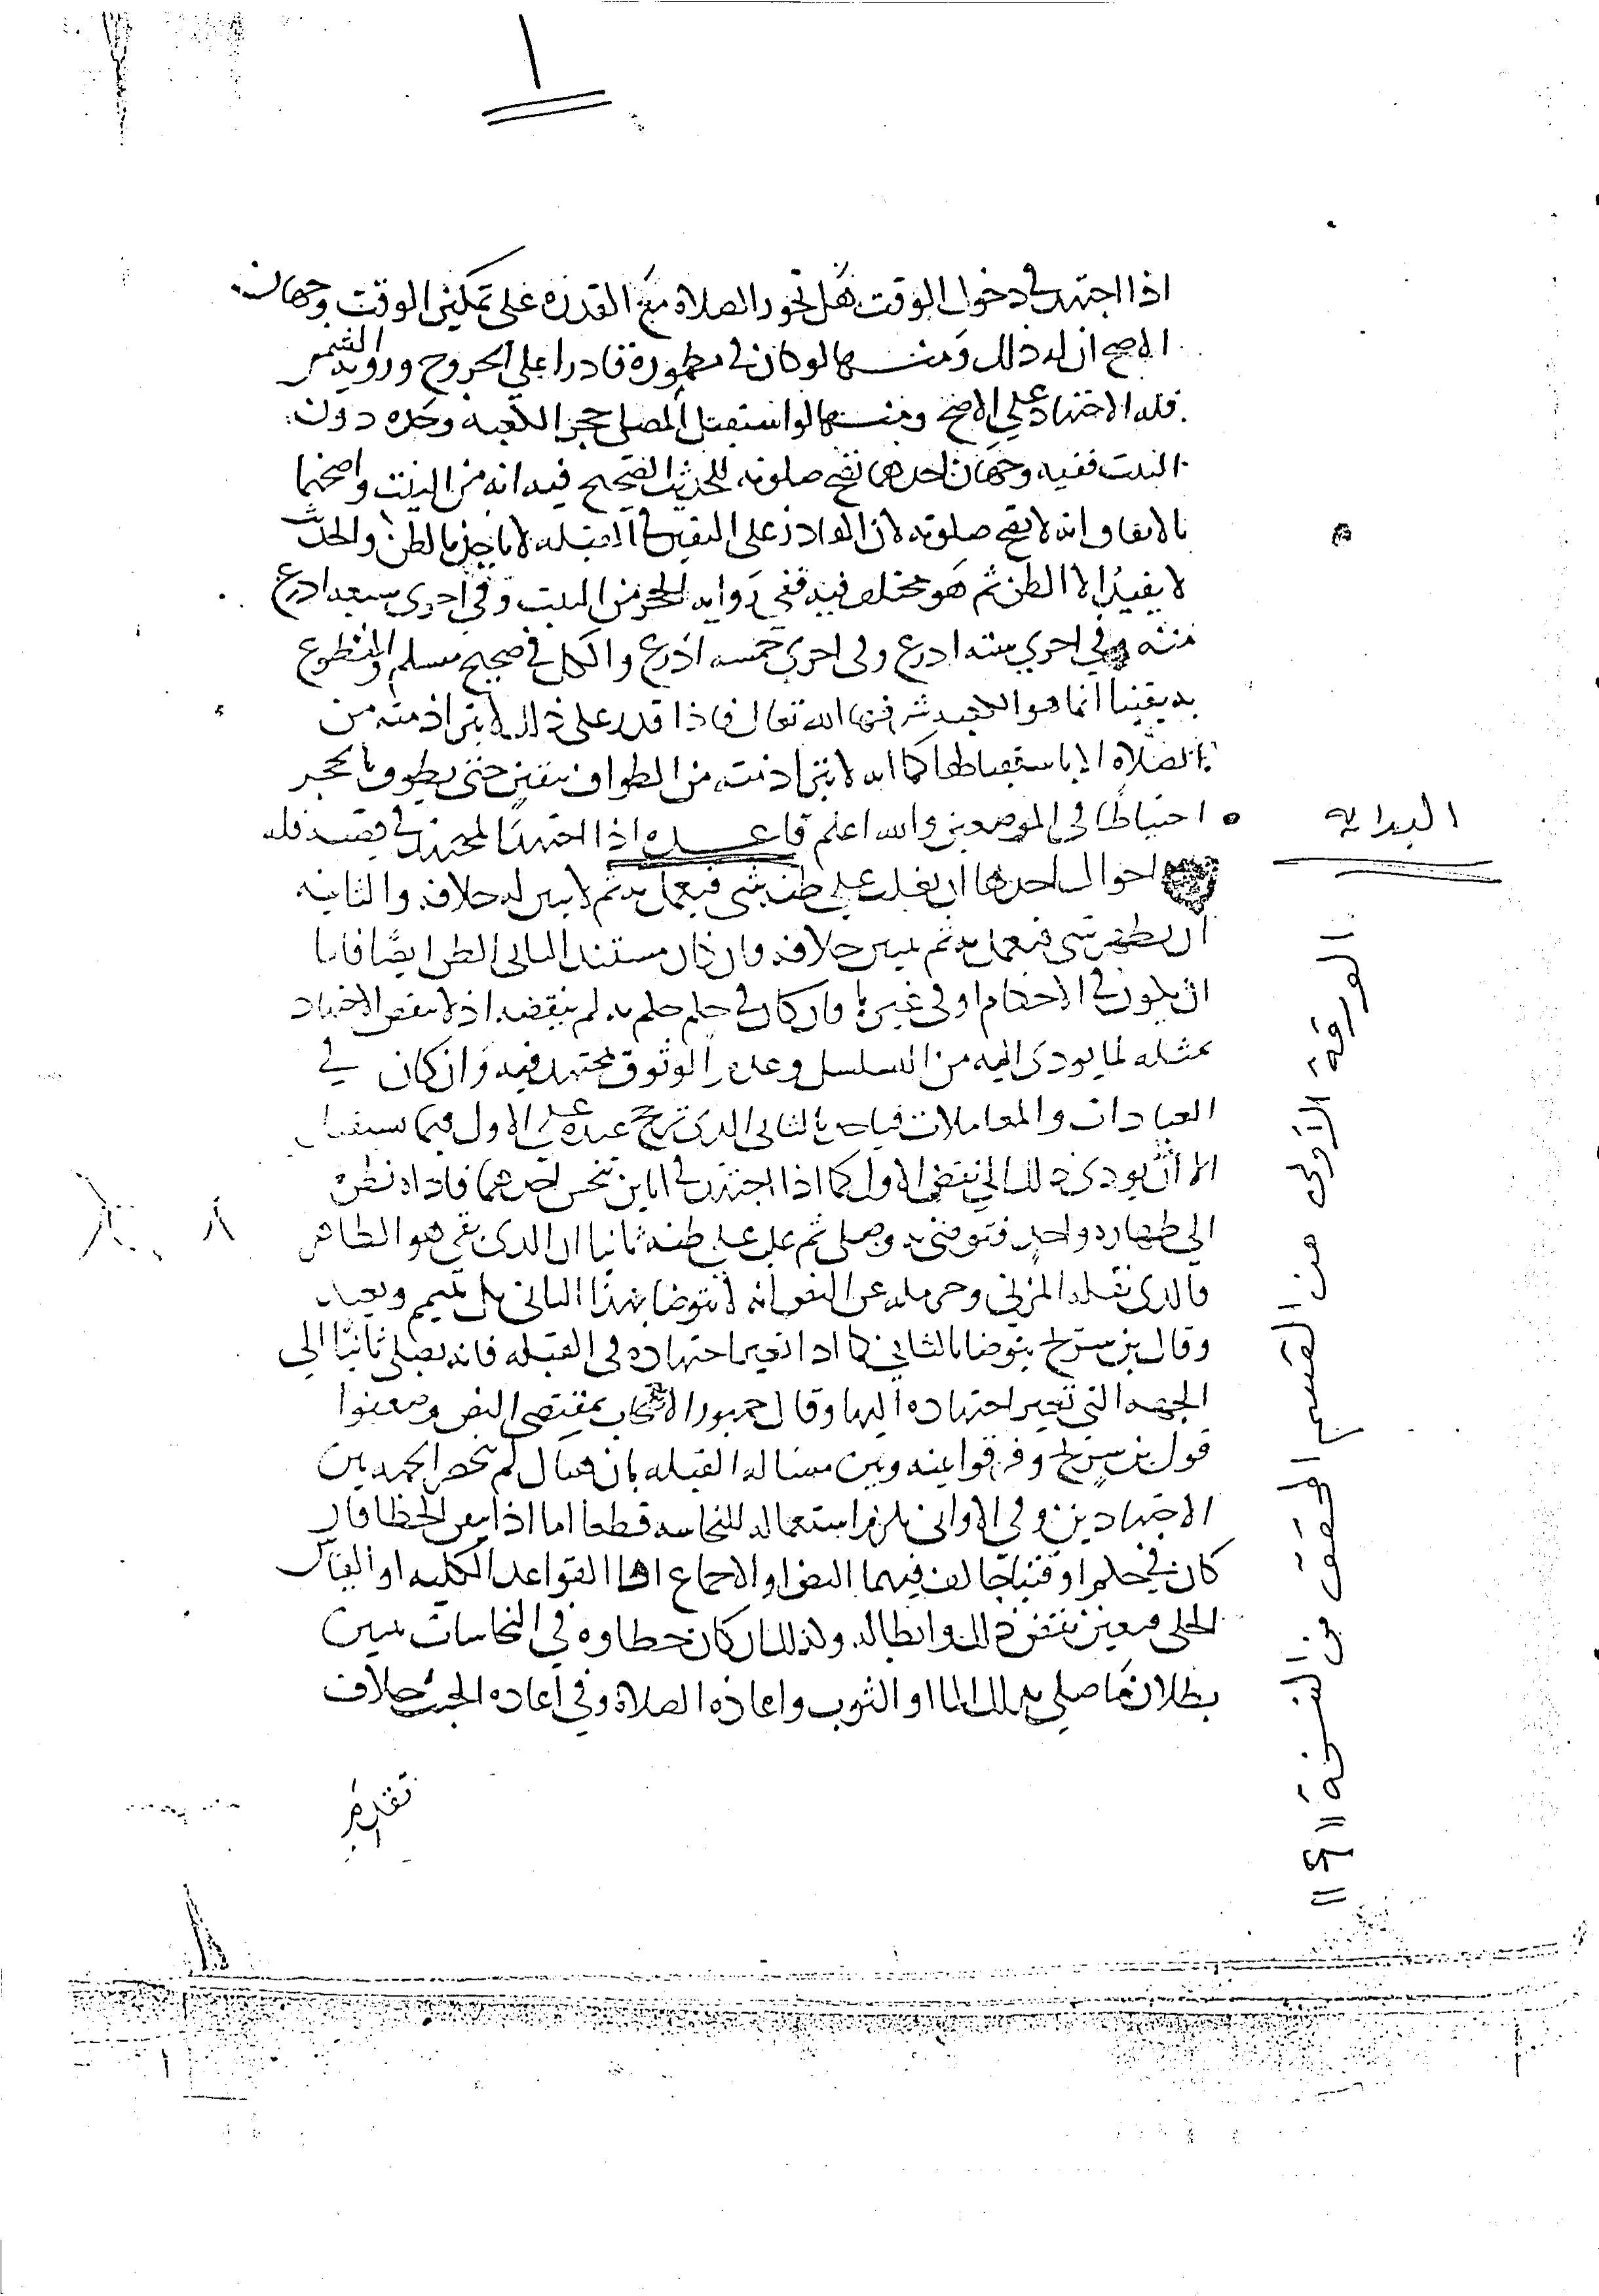 ١
اذا اجتهد في دخول الوقت هل تجوز الصلاة مع القدرة على تمكين الوقت وجهان
الاصح ان له ذلك ومنها لو كان في مطمورة قادرا على الخروج وروية الشمس
فله الاجتهاد على الاصح ومنها لو استقبل المصلي حجر الكعبه وحده دون
البيت ففيه وجهان احدهما تصح صلوته للحديث الصحيح فيه انه من البيت واصحهما
بالاتفاق انه لا تصح صلوته لان القادر على اليقين في القبله لا ياخذ بالظن والحديث
لا يفيد الا الظن ثم هو مختلف فيه ففي رواية الحجر من البيت وفي اخرى سبعه اذرع
منه وفي اخرى سته اذرع وفي اخرى خمسه اذرع والكل في صحيح مسلم والمقطوع
به يقينا انما هو الكعبه شرفها الله تعالى فاذا قدر على ذلك لا تبرا ذمته من
الصلاة الا باستقبالها كما انه لا تبرا ذمته من الطواف بيقين حتى يطوف بالحجر
احتياطا في الموضعين والله اعلم قاعده اذا اجتهد المجتهد في قضية فله
احوال احدها ان يغلب على ظنه شي فيعمل به ثم لا يتبين له خلافه والثانيه
ان يظهر شي فيعمل به ثم يتبين خلافه فان كان مستند الثاني الظن ايضا فاما
ان يكون في الاحكام او في غيرها فان كان في حكم حكم به لم ينقضه اذ لا ينقض الاجتهاد
بمثله لما يودي اليه من التسلسل وعدم الوثوق بمجتهد فيه وان كان في
العبادات والمعاملات فياخذ بالثاني الذي ترجح عنده على الاول فيما يستقبل
الا ان يودي ذلك الي نقض الاول كما اذا اجتهد في انايين نجس احدهما فاداه نظره
الي طهارة واحد فتوضى به وصلى ثم غلب على ظنه ثانيا ان الذي بقي هو الطاهر
فالذي نقله المزني وحرمله عن النص انه لا يتوضا بهذا الثاني بل يتيمم ويعيد
وقال بن سريج يتوضا بالثاني كما اذا تغير اجتهاده في القبله فانه يصلى ثانيا الي
الجهه التي تغير اجتهاده اليها وقال جمهور الاصحاب بمقتضى النص وضعفوا
قول بن سريج وفرقوا بينه وبين مساله القبله بان هناك لم تنحصر الجهه بين
الاجتهادين وفي الاواني يلزم استعماله للنجاسه قطعا اما اذا تيقن الخطا فان
كان في حكم او فتيا خالف فيهما النص او الاجماع او القواعد الكليه او القياس
الجلي فيتعين نقض ذلك وابطاله وكذلك ان كان خطاوه في النجاسات تبين
بطلان ما صلى بذلك الما او الثوب واعادة الصلاة وفي اعاده الجنب خلاف
تقديم
البدايه
الورقة الأولى من القسم المحقق من النسخة "ق"